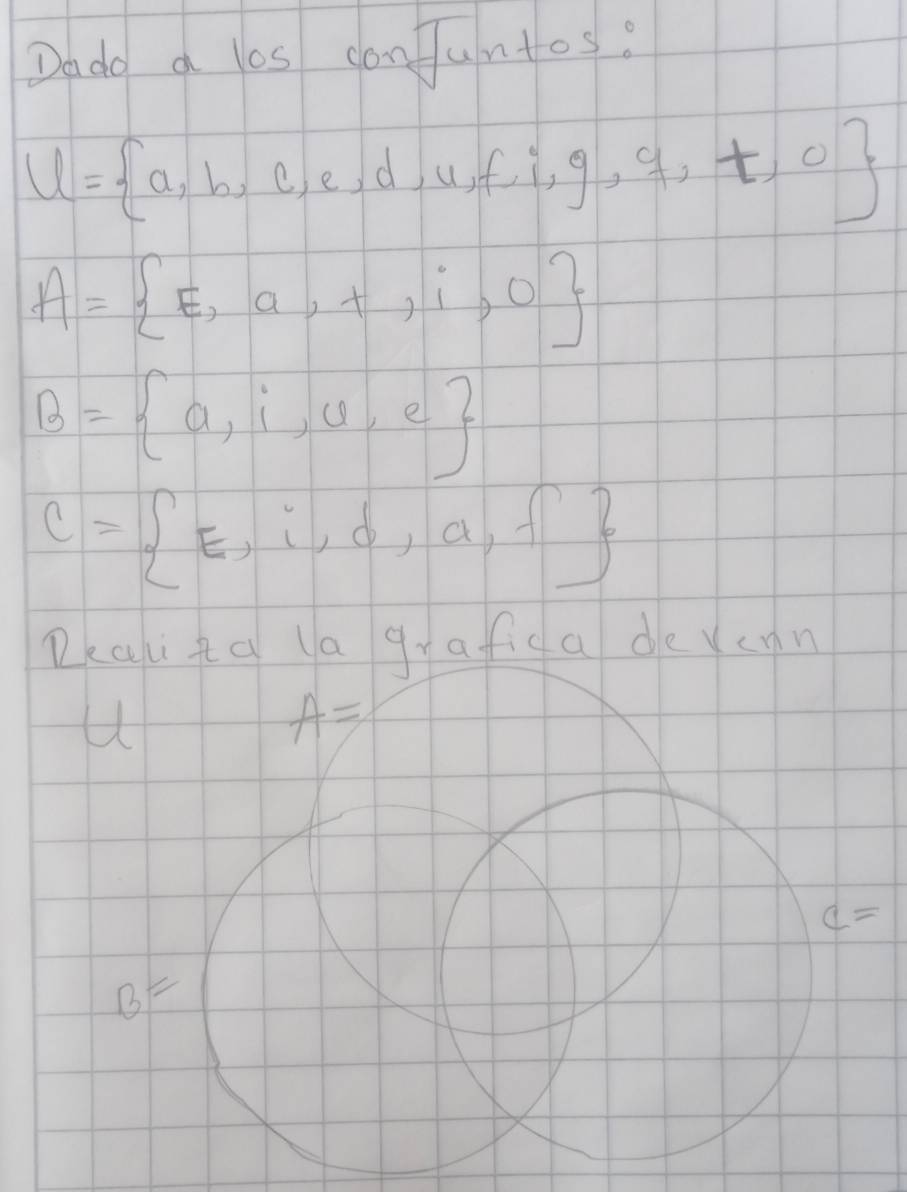 Dado a los conJuntos:
U={a, b, c, e, d, u, f, i, g, q, t, o}
A={E, a, t, i, o}
B={a, i, u, e}
C={E, i, d, a, f}
Realiza la grafica de venn
U A=
C=
B=